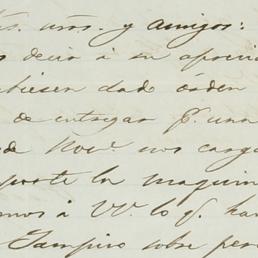 ñros. y amigos:
decir á su apreci
hubiesen dado órden
de entregar p. una
de Nov.e nos carga
porte la maquin
mos á VV. lo q. han
Tampico sobre pes